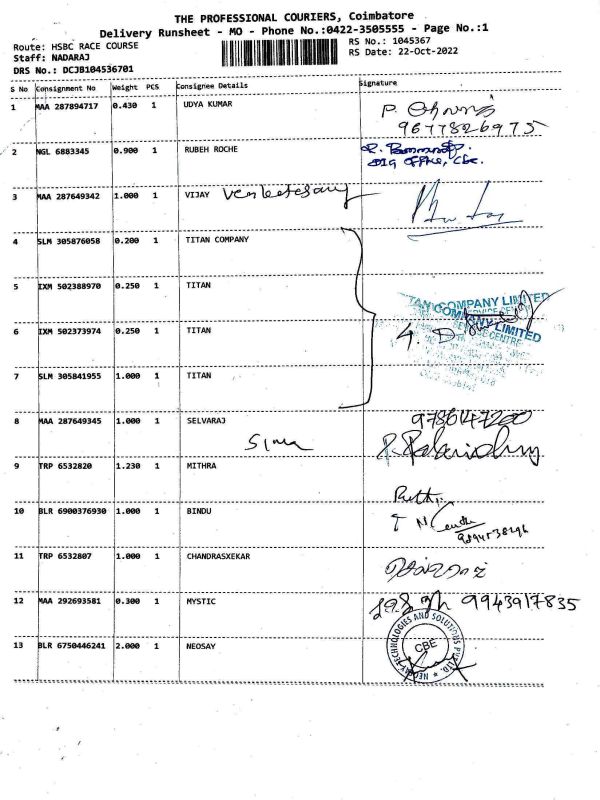 THE PROFESSIONAL COURIERS, Coimbatore
Delivery Runsheet - MO - Phone No.:0422-3505555 - Page No.:1
Route: HSBC RACE COURSE RS No.: 1045367
Staff: NADARAJ RS Date: 22-Oct-2022
DRS No.: DCJB104536701
S No Consignment No Weight PCS Consignee Details Signature
1 MAA 287894717 0.430 1 UDYA KUMAR P.
9677826975
2 NGL 6883345 0.900 1 RUBEH ROCHE
DIG Office, Cbe.
3 MAA 287649342 1.000 1 VIJAY Venkatesany
4 SLM 305876058 0.200 1 TITAN COMPANY
5 IXM 502388970 0.250 1 TITAN
TITAN COMPANY LIMITED
6 IXM 502373974 0.250 1 TITAN 4.
7 SLM 305841955 1.000 1 TITAN
8 MAA 287649345 1.000 1 SELVARAJ 9786147200
9 TRP 6532820 1.230 1 MITHRA
10 BLR 6900376930 1.000 1 BINDU
11 TRP 6532807 1.000 1 CHANDRASXEKAR
12 MAA 292693581 0.300 1 MYSTIC 9943917835
13 BLR 6750446241 2.000 1 NEOSAY CBE